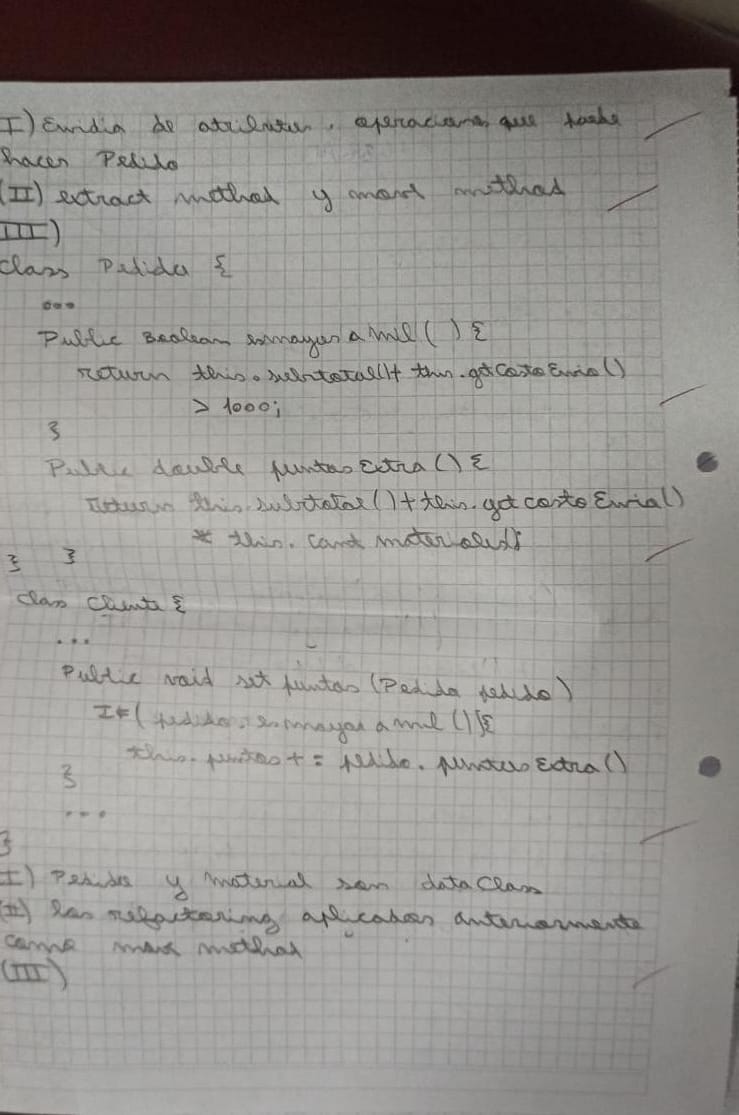 I) Envidia de atributos, operaciones que puede
hacer Pedido
(II) extract method y move method
III)
class Pedido {
...
Public Boolean esmayor a mil ( ) {
return this.subtotal()+ this.getCostoEnvio()
> 1000;
}
Public double puntosExtra () {
return this.subtotal()+this.getcostoEnvio()
* this.cant materiales
} }
class Cliente {
...
Public void set puntos (Pedido pedido)
IF (pedido.esmayor a mil () {
this.puntos += pedido.puntosExtra()
}
...
}
I) Pedido y material son dataClass
(II) los refactoring aplicados anteriormente
como move method
(III)